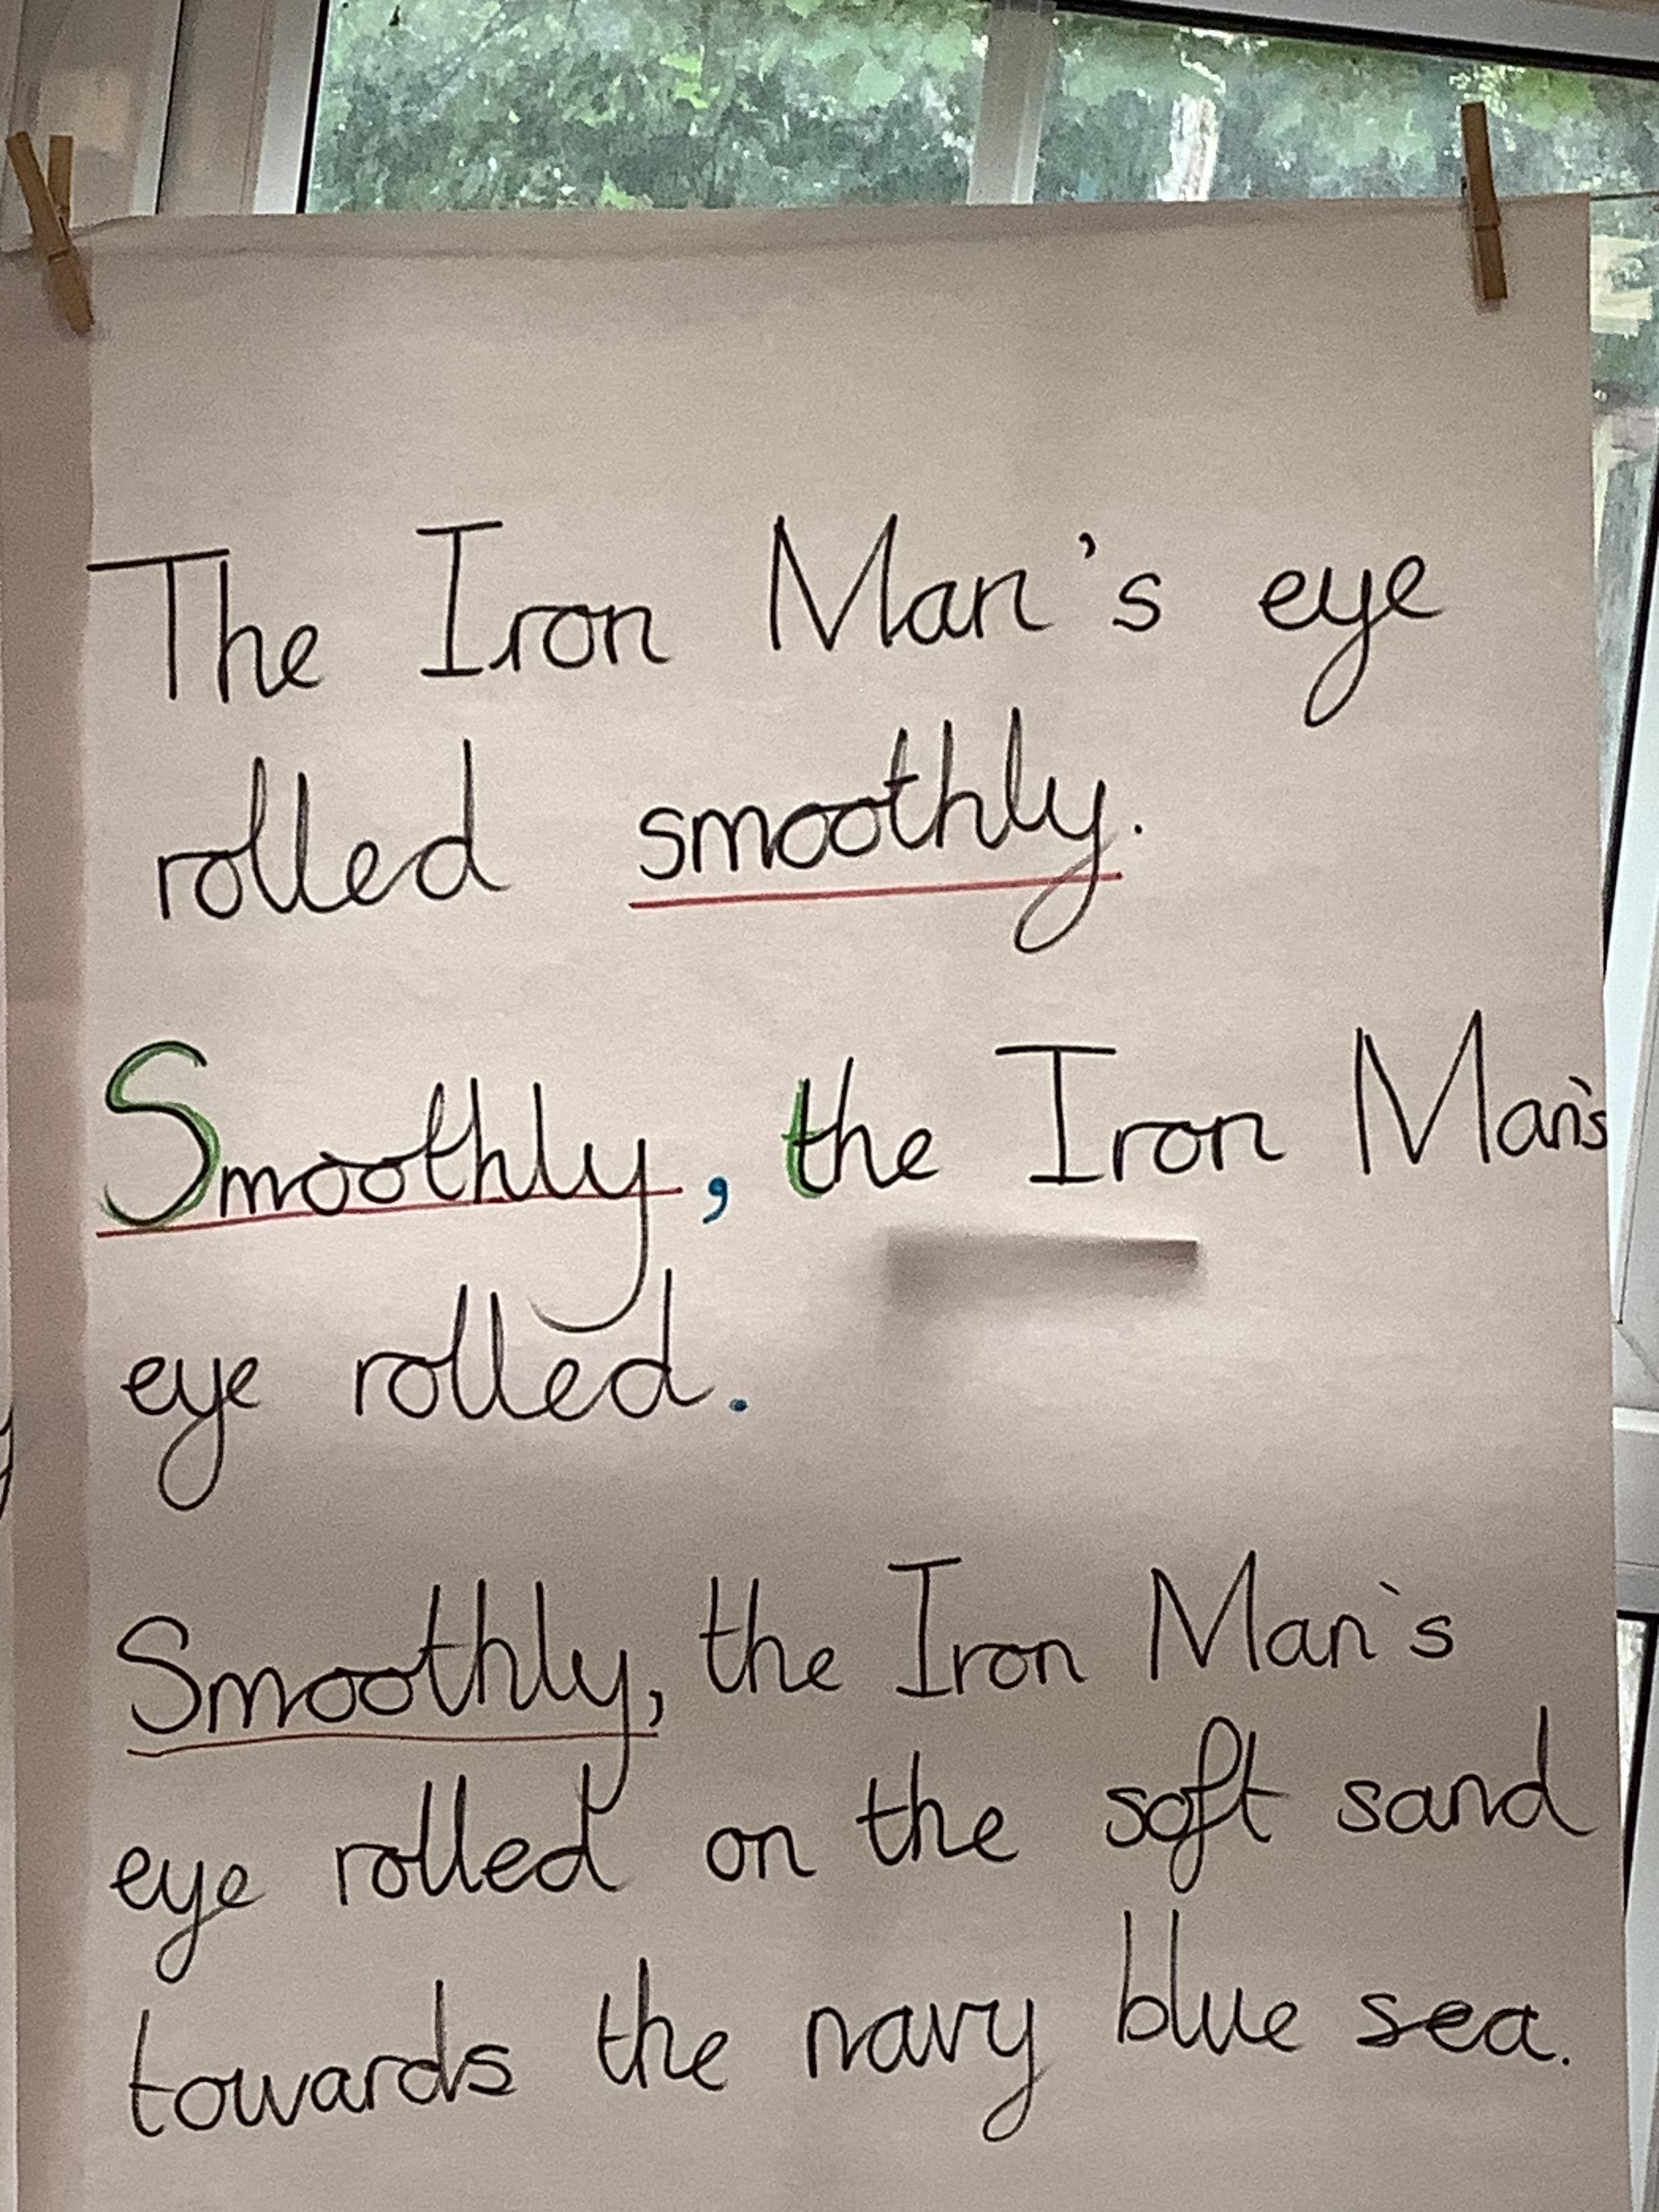 The Iron Man's eye
rolled smoothly.
Smoothly, the Iron Man's
eye rolled.
Smoothly, the Iron Man's
eye rolled on the soft sand
towards the navy blue sea.